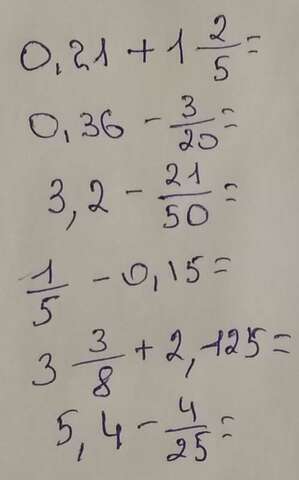 0,21 + 1 2/5 =
0,36 - 3/20 =
3,2 - 21/50 =
1/5 - 0,15 =
3 3/8 + 2,125 =
5,4 - 4/25 =